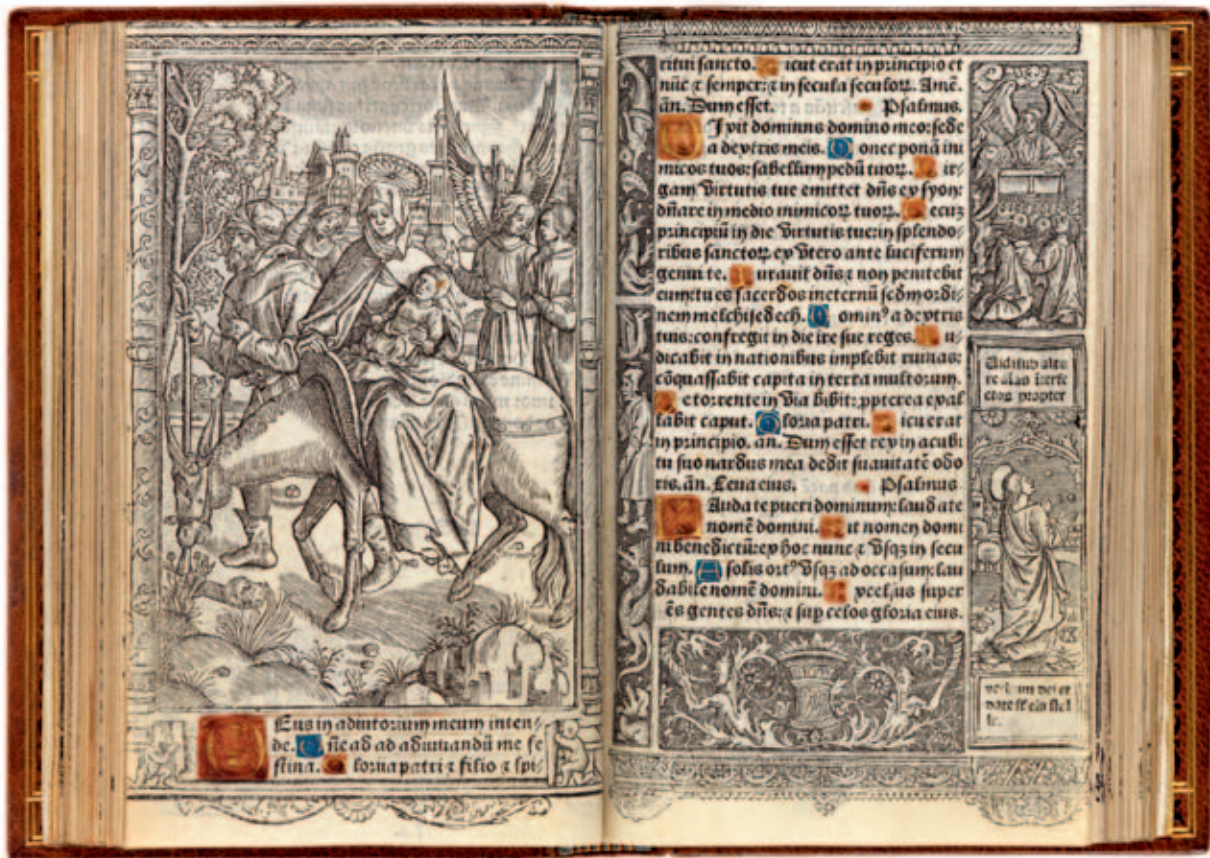 Deus in adiutorium meum inten-
de. Dñe ad adiuuandũ me fe
stina. Gloria patri ⁊ filio ⁊ spi-
ritui sancto. Sicut erat in principio et
nũc ⁊ semper: ⁊ in secula seculoꝝ. Amẽ.
añ. Dum esset. Psalmus.
Dixit dominus domino meo: sede
a dextris meis. Donec ponã ini
micos tuos: scabellum pedũ tuoꝝ. Uir-
gam virtutis tue emittet dñs ex syon:
dñare in medio inimicoꝝ tuoꝝ. Tecuꝫ
principiũ in die virtutis tue: in splendo-
ribus sanctoꝝ ex vtero ante luciferum
genui te. Iurauit dñs ⁊ non penitebit
eum: tu es sacerdos in eternũ scðm ordi-
nem melchisedech. Dominꝰ a dextris
tuis: confregit in die ire sue reges. Iu-
dicabit in nationibus implebit ruinas:
cõquassabit capita in terra multorum.
De torrente in via bibit: ꝓpterea exal
tabit caput. Gloria patri. Sicut erat
in principio. an. Dum esset rex in acubi
tu suo nardus mea dedit suauitatẽ odo
ris. añ. Leua eius. Psalmus
Laudate pueri dominum: laudate
nomẽ domini. Sit nomen domi
ni benedictũ: ex hoc nunc ⁊ vsqꝫ in secu
lum. A solis ortꝰ vsqꝫ ad occasum: lau
dabile nomẽ domini. Excelsus super
oẽs gentes dñs: ⁊ sup celos gloria eius.
propter